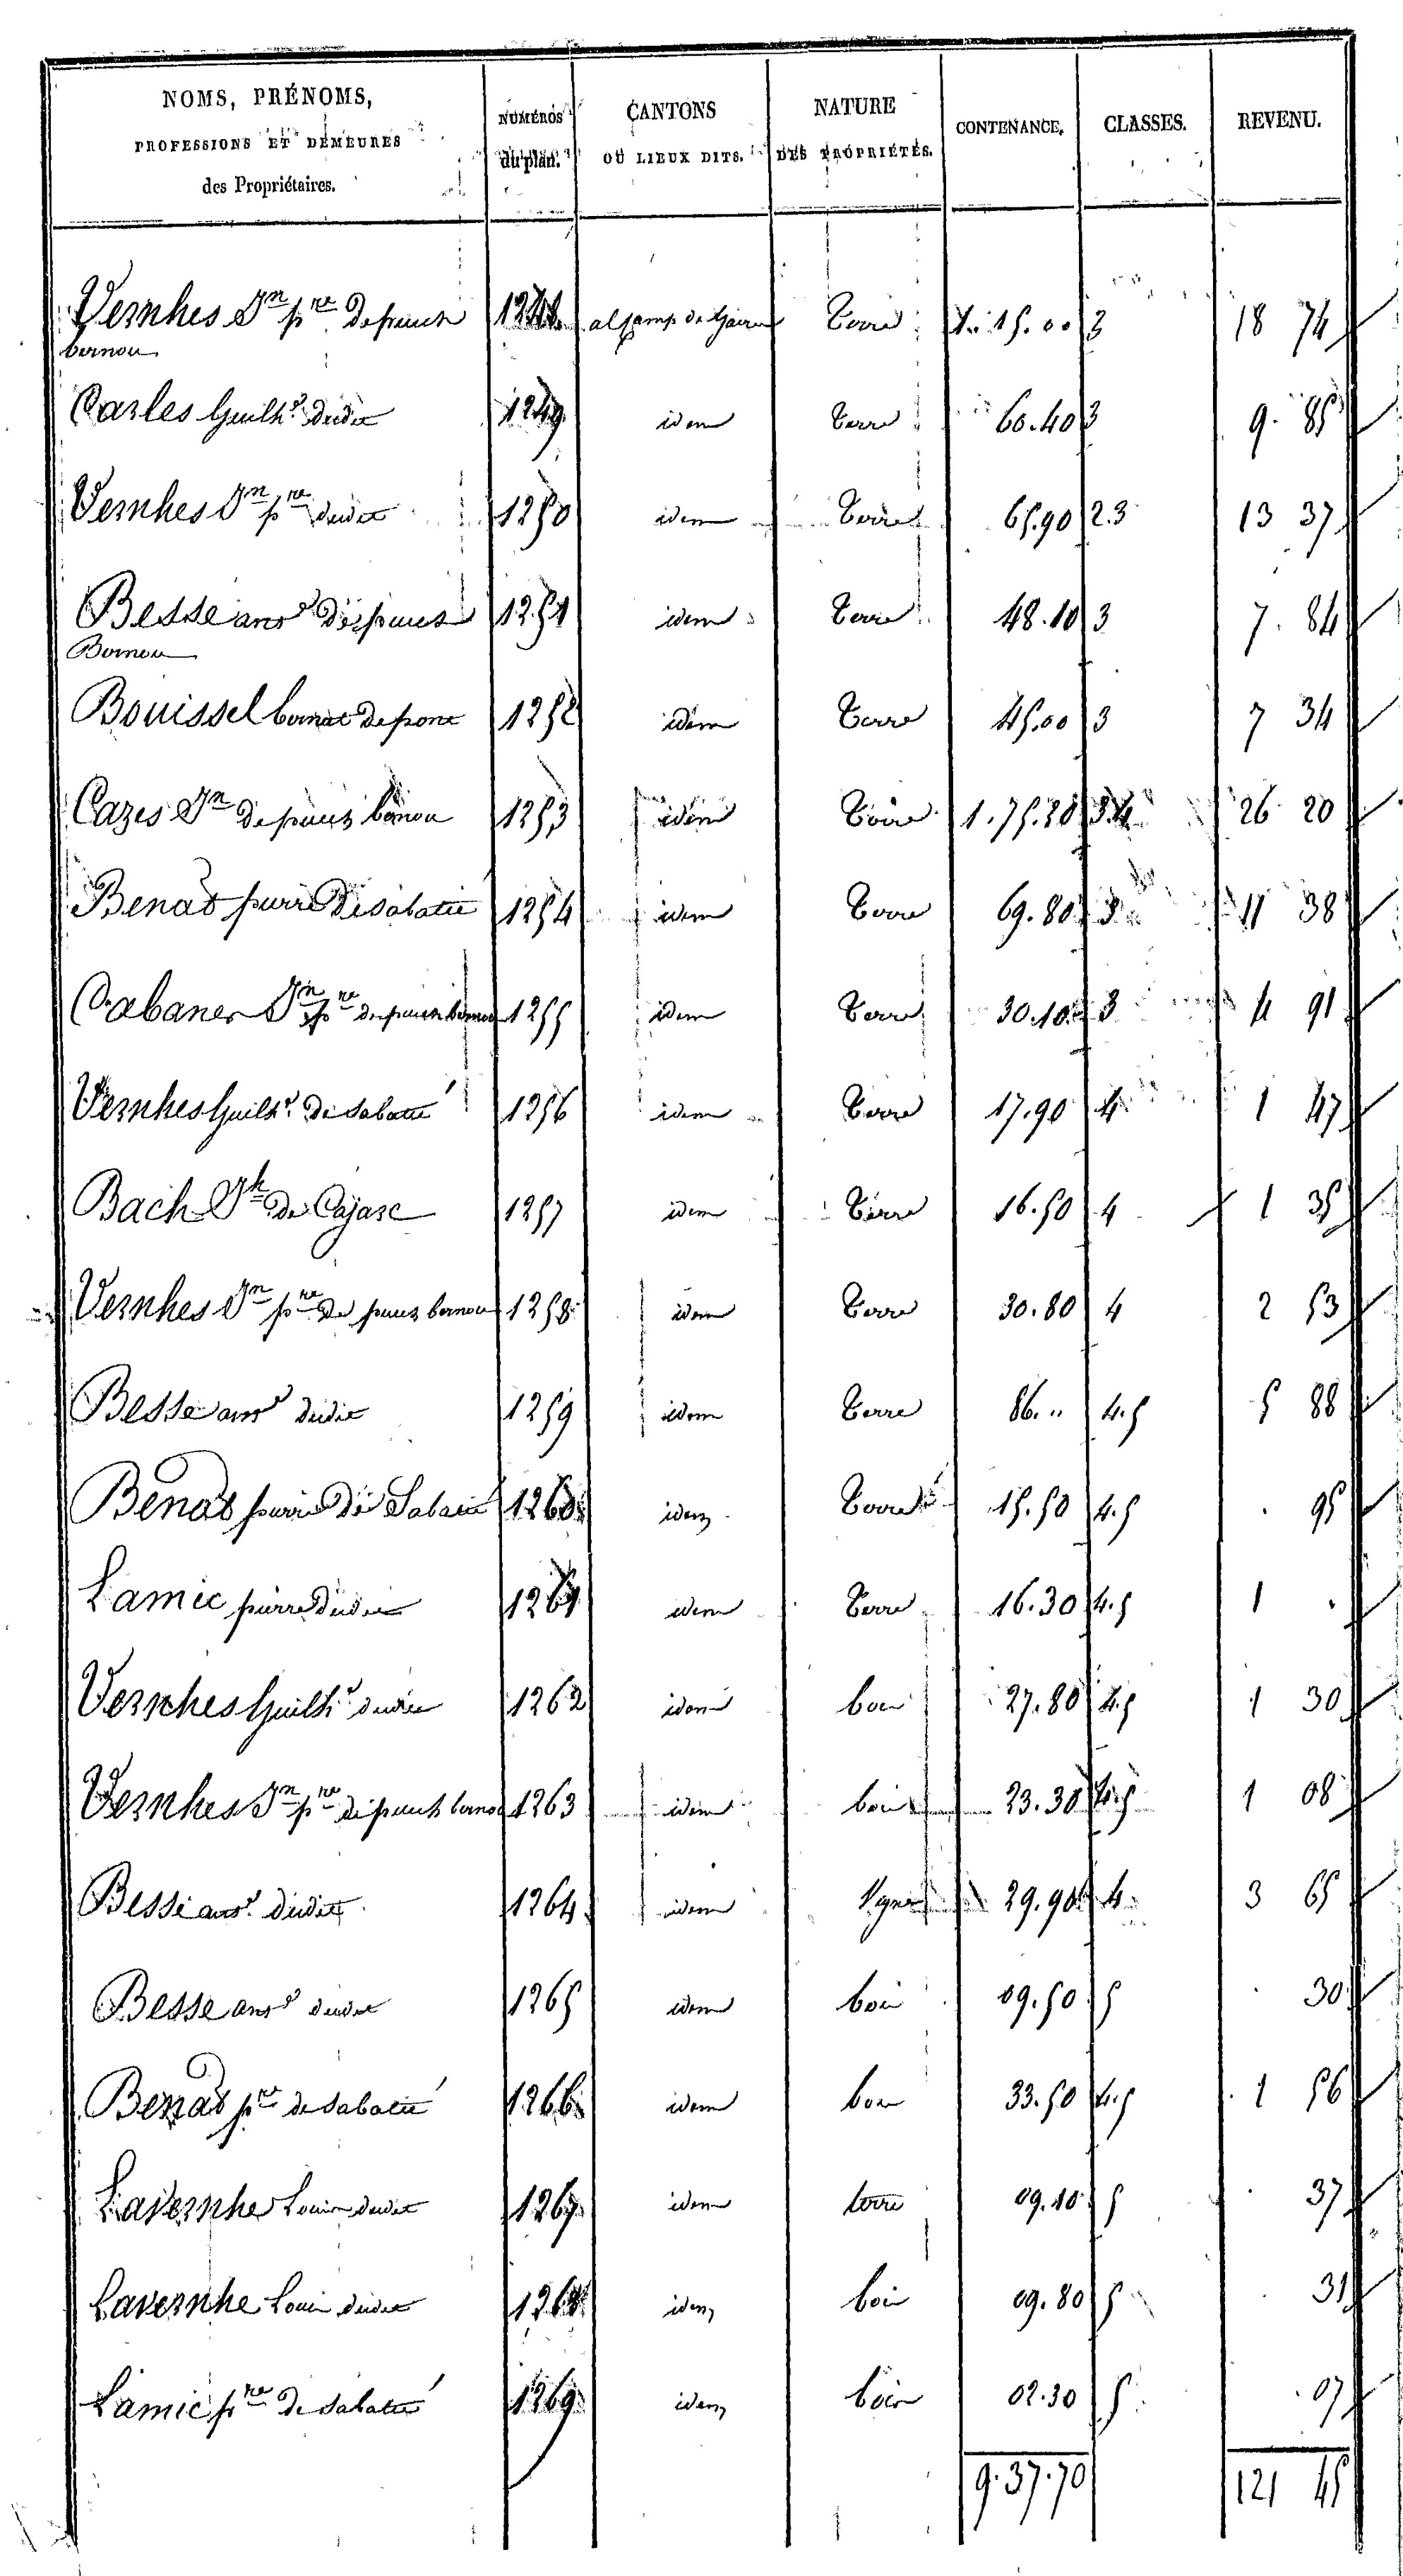 NOMS, PRÉNOMS, PROFESSIONS ET DEMEURES des Propriétaires. NUMÉROS du plan. CANTONS OÙ LIEUX DITS. NATURE DES PROPRIÉTÉS. CONTENANCE. CLASSES. REVENU.
Vernhes Jn pre de puech 1248 terre 1.15.00 3 18 74
bernou
Carles Guilhe dudit 1249 idem terre 60.40 3 9. 85
Vernhes Jn pre dudit 1250 idem terre 65.90 2.3 13 37
Besse anne de puech 1251 idem terre 48.10 3 7. 84
Bernou
Bouissel bernat de pone 1252 idem terre 45.00 3 7 34
Cazes Jn de puech bernou 1253 idem terre 1.75.20 3.4 26 20
Benat pierre de Sabatié 1254 idem terre 69.80 3 11 38
Cabanes Jn pre de puech bernou 1255 idem terre 30.10 3 4 91
Vernhes Guilhe de Sabatié 1256 idem terre 17.90 4 1 47
Bach Jh de Cajarc 1257 idem terre 16.50 4 1 35
Vernhes Jn pre de puech bernou 1258 idem terre 30.80 4 2 53
Besse anne dudit 1259 idem terre 86. " 4.5 5 88
Benat pierre de Sabatié 1260 idem terre 15.50 4.5 . 95
Lamic pierre dudit 1261 idem terre 16.30 4.5 1 .
Vernhes Guilhe dudit 1262 idem bois 27.80 4.5 1 30
Vernhes Jn pre de puech bernou 1263 idem bois 23.30 4.5 1 08
Besse anne dudit 1264 idem Vigne 29.90 4 3 65
Besse anne dudit 1265 idem bois 09.50 5 . 30
Benat pre de Sabatié 1266 idem bois 33.50 4.5 1 56
Lavernhe Louis dudit 1267 idem terre 09.10 5 . 37
Lavernhe Louis dudit 1268 idem bois 09.80 5 31
Lamic pre de Sabatié 1269 idem bois 02.30 5 . 07
9.37.70 121 45